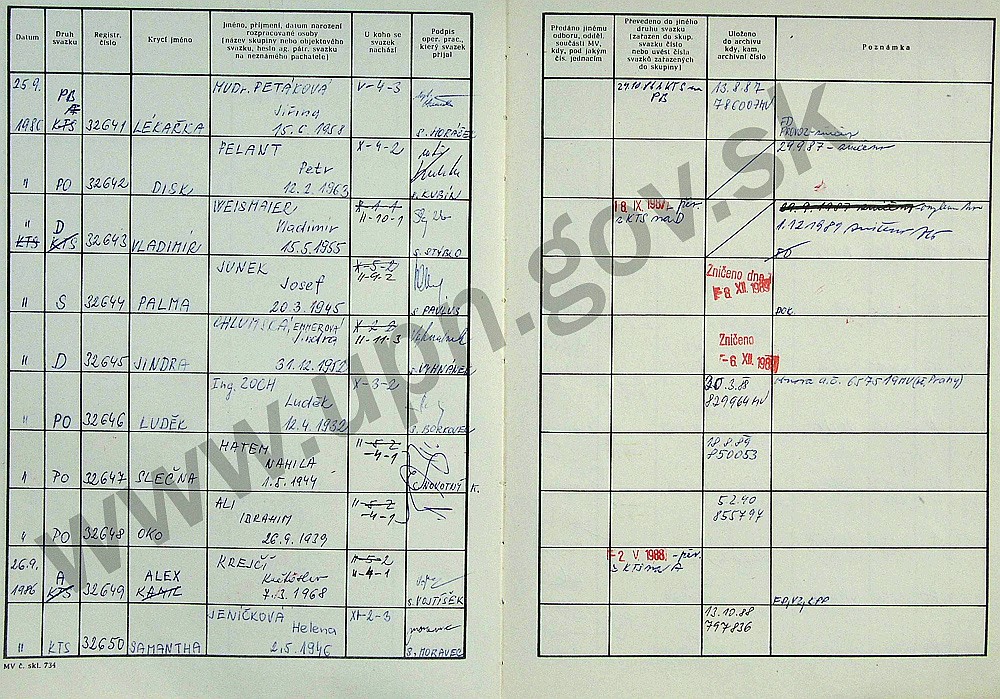 Datum
Druh
svazku
Registr.
číslo
Krycí jméno
Jméno, příjmení, datum narození
rozpracované osoby
(název skupiny nebo objektového
svazku, heslo ag. pátr. svazku
na neznámého pachatele)
U koho se
svazek
nachází
Podpis
oper. prac.,
který svazek
přijal
Předáno jinému
odboru, odděl.
součásti MV,
kdy, pod jakým
čís. jednacím
Převedeno do jiného
druhu svazku
(zařazen do skup.
svazku číslo
nebo uvést čísla
svazků zařazených
do skupiny)
Uloženo
do archivu
kdy, kam,
archivní číslo
Poznámka
25.9.
1986
PB
KTS
32641
LÉKAŘKA
MUDr. PETÁKOVÁ
Jiřina
15.6.1958
V-4-3
s. HORÁČEK
13.8.87
FD
"
PO
32642
DISK
PELANT
Petr
12.2.1963
X-4-2
s. KUBÍN
29.9.87 - zničeno
"
KTS
D
KTS
32643
VLADIMÍR
WEISMAIER
Vladimír
15.5.1955
II-10-1
s. STYBLO
18 IX. 1987 - pěv.
z KTS na D
"
S
32644
PALMA
JUNEK
Josef
20.3.1945
X-5-2
II-9-2
s. PAVLUS
Zničeno dne
XII. 1989
"
D
32645
JINDRA
CHLUMSKÁ, EMMEROVÁ
Jindra
31.12.1952
X-2-2
II-11-3
Zničeno
-6. XII. 1989
"
PO
32646
LUDĚK
Ing. ZOCH
Luděk
12.4.1932
X-3-2
s. BORKOVEC
20.3.88
829964 MV
"
PO
32647
SLEČNA
HATEM
NAHILA
1.5.1944
II-5-2
-4-1
NOVOTNÝ K.
18.8.89
850053
"
PO
32648
OKO
ALI
IBRAHIM
26.9.1939
II-5-2
-4-1
855794
26.9.
1986
A
KTS
32649
ALEX
KAMIL
KREJČÍ
7.3.1968
II-5-2
II-4-1
s. VOJTÍŠEK
-2 V. 1988 - pěv.
z KTS na A
"
KTS
32650
SAMANTHA
JENÍČKOVÁ
Helena
2.5.1946
XI-2-3
s. MORAVEC
13.10.88
797836
MV č. skl. 734
www.upn.gov.sk